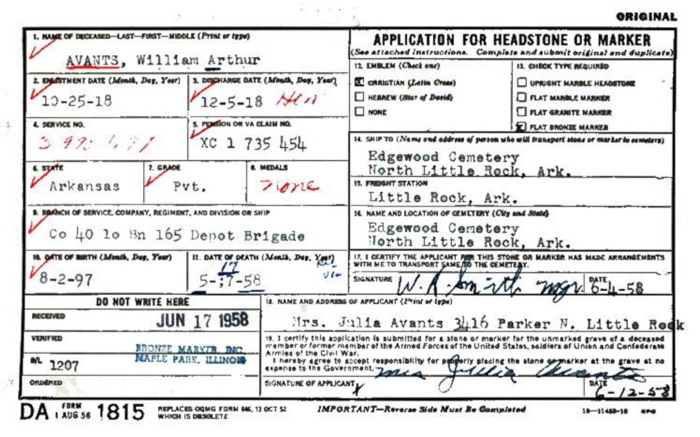 ORIGINAL
1. NAME OF DECEASED—LAST—FIRST—MIDDLE (Print or type)
AVANTS, William Arthur
2. ENLISTMENT DATE (Month, Day, Year)
10-25-18
3. DISCHARGE DATE (Month, Day, Year)
12-5-18 Hon
4. SERVICE NO.
5. PENSION OR VA CLAIM NO.
XC 1 735 454
6. STATE
Arkansas
7. GRADE
Pvt.
8. MEDALS
none
9. BRANCH OF SERVICE, COMPANY, REGIMENT, AND DIVISION OR SHIP
Co 40 10 Bn 165 Depot Brigade
10. DATE OF BIRTH (Month, Day, Year)
8-2-97
11. DATE OF DEATH (Month, Day, Year)
5-17-58
17
DO NOT WRITE HERE
RECEIVED
JUN 17 1958
VERIFIED
BRONZE MARKER, INC
MAPLE PARK, ILLINOIS
B/L 1207
ORDERED
APPLICATION FOR HEADSTONE OR MARKER
(See attached instructions. Complete and submit original and duplicate)
12. EMBLEM (Check one)
X CHRISTIAN (Latin Cross)
HEBREW (Star of David)
NONE
13. CHECK TYPE REQUIRED
UPRIGHT MARBLE HEADSTONE
FLAT MARBLE MARKER
FLAT GRANITE MARKER
X FLAT BRONZE MARKER
14. SHIP TO (Name and address of person who will transport stone or marker to cemetery)
Edgewood Cemetery
North Little Rock, Ark.
15. FREIGHT STATION
Little Rock, Ark.
16. NAME AND LOCATION OF CEMETERY (City and State)
Edgewood Cemetery
North Little Rock, Ark.
17. I CERTIFY THE APPLICANT FOR THIS STONE OR MARKER HAS MADE ARRANGEMENTS
WITH ME TO TRANSPORT SAME TO THE CEMETERY.
SIGNATURE W. R. Smith mgr
DATE
6-4-58
18. NAME AND ADDRESS OF APPLICANT (Print or type)
Mrs. Julia Avants 3416 Parker N. Little Rock
19. I certify this application is submitted for a stone or marker for the unmarked grave of a deceased
member or former member of the Armed Forces of the United States, soldiers of Union and Confederate
Armies of the Civil War.
I hereby agree to accept responsibility for properly placing the stone or marker at the grave at no
expense to the Government.
SIGNATURE OF APPLICANT
X Mrs Julia Avants
DATE
6-12-58
DA FORM 1 AUG 56 1815
REPLACES OQMG FORM 646, 13 OCT 52
WHICH IS OBSOLETE
IMPORTANT—Reverse Side Must Be Completed
GPO